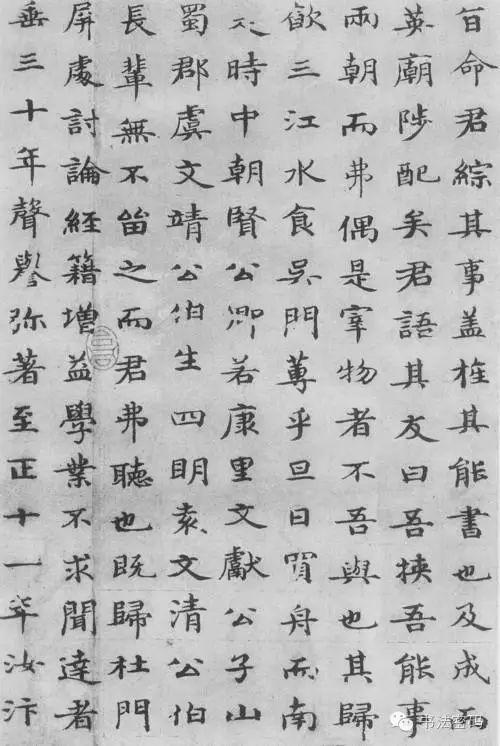 旨命君綜其事盖推其能書也及成而
英廟陟配矣君語其友曰吾挾吾能事
兩朝而弗偶是宰物者不吾與也其歸
㱃三江水食吳門蓴乎旦日買舟而南
時中朝賢公卿若康里文獻公子山
蜀郡虞文靖公伯生四明袁文清公伯
長輩無不畱之而君弗聽也既歸杜門
屏處討論經籍增益學業不求聞達者
垂三十年聲譽弥著至正十一年汝汴
书法密码